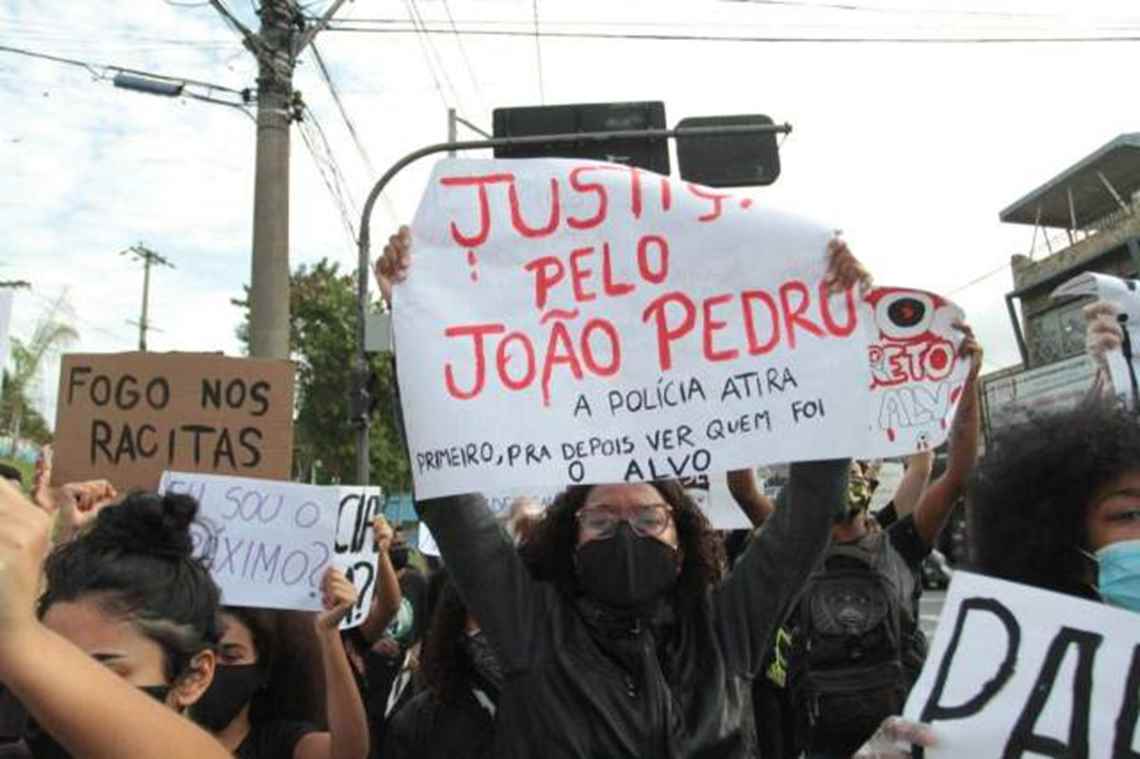 JUSTIÇ
PELO
JOÃO PEDRO
A POLÍCIA ATIRA
PRIMEIRO, PRA DEPOIS VER QUEM FOI
O ALVO
FOGO NOS
RACITAS
EU SOU O
PRÓXIMO?
RETO
ALVO